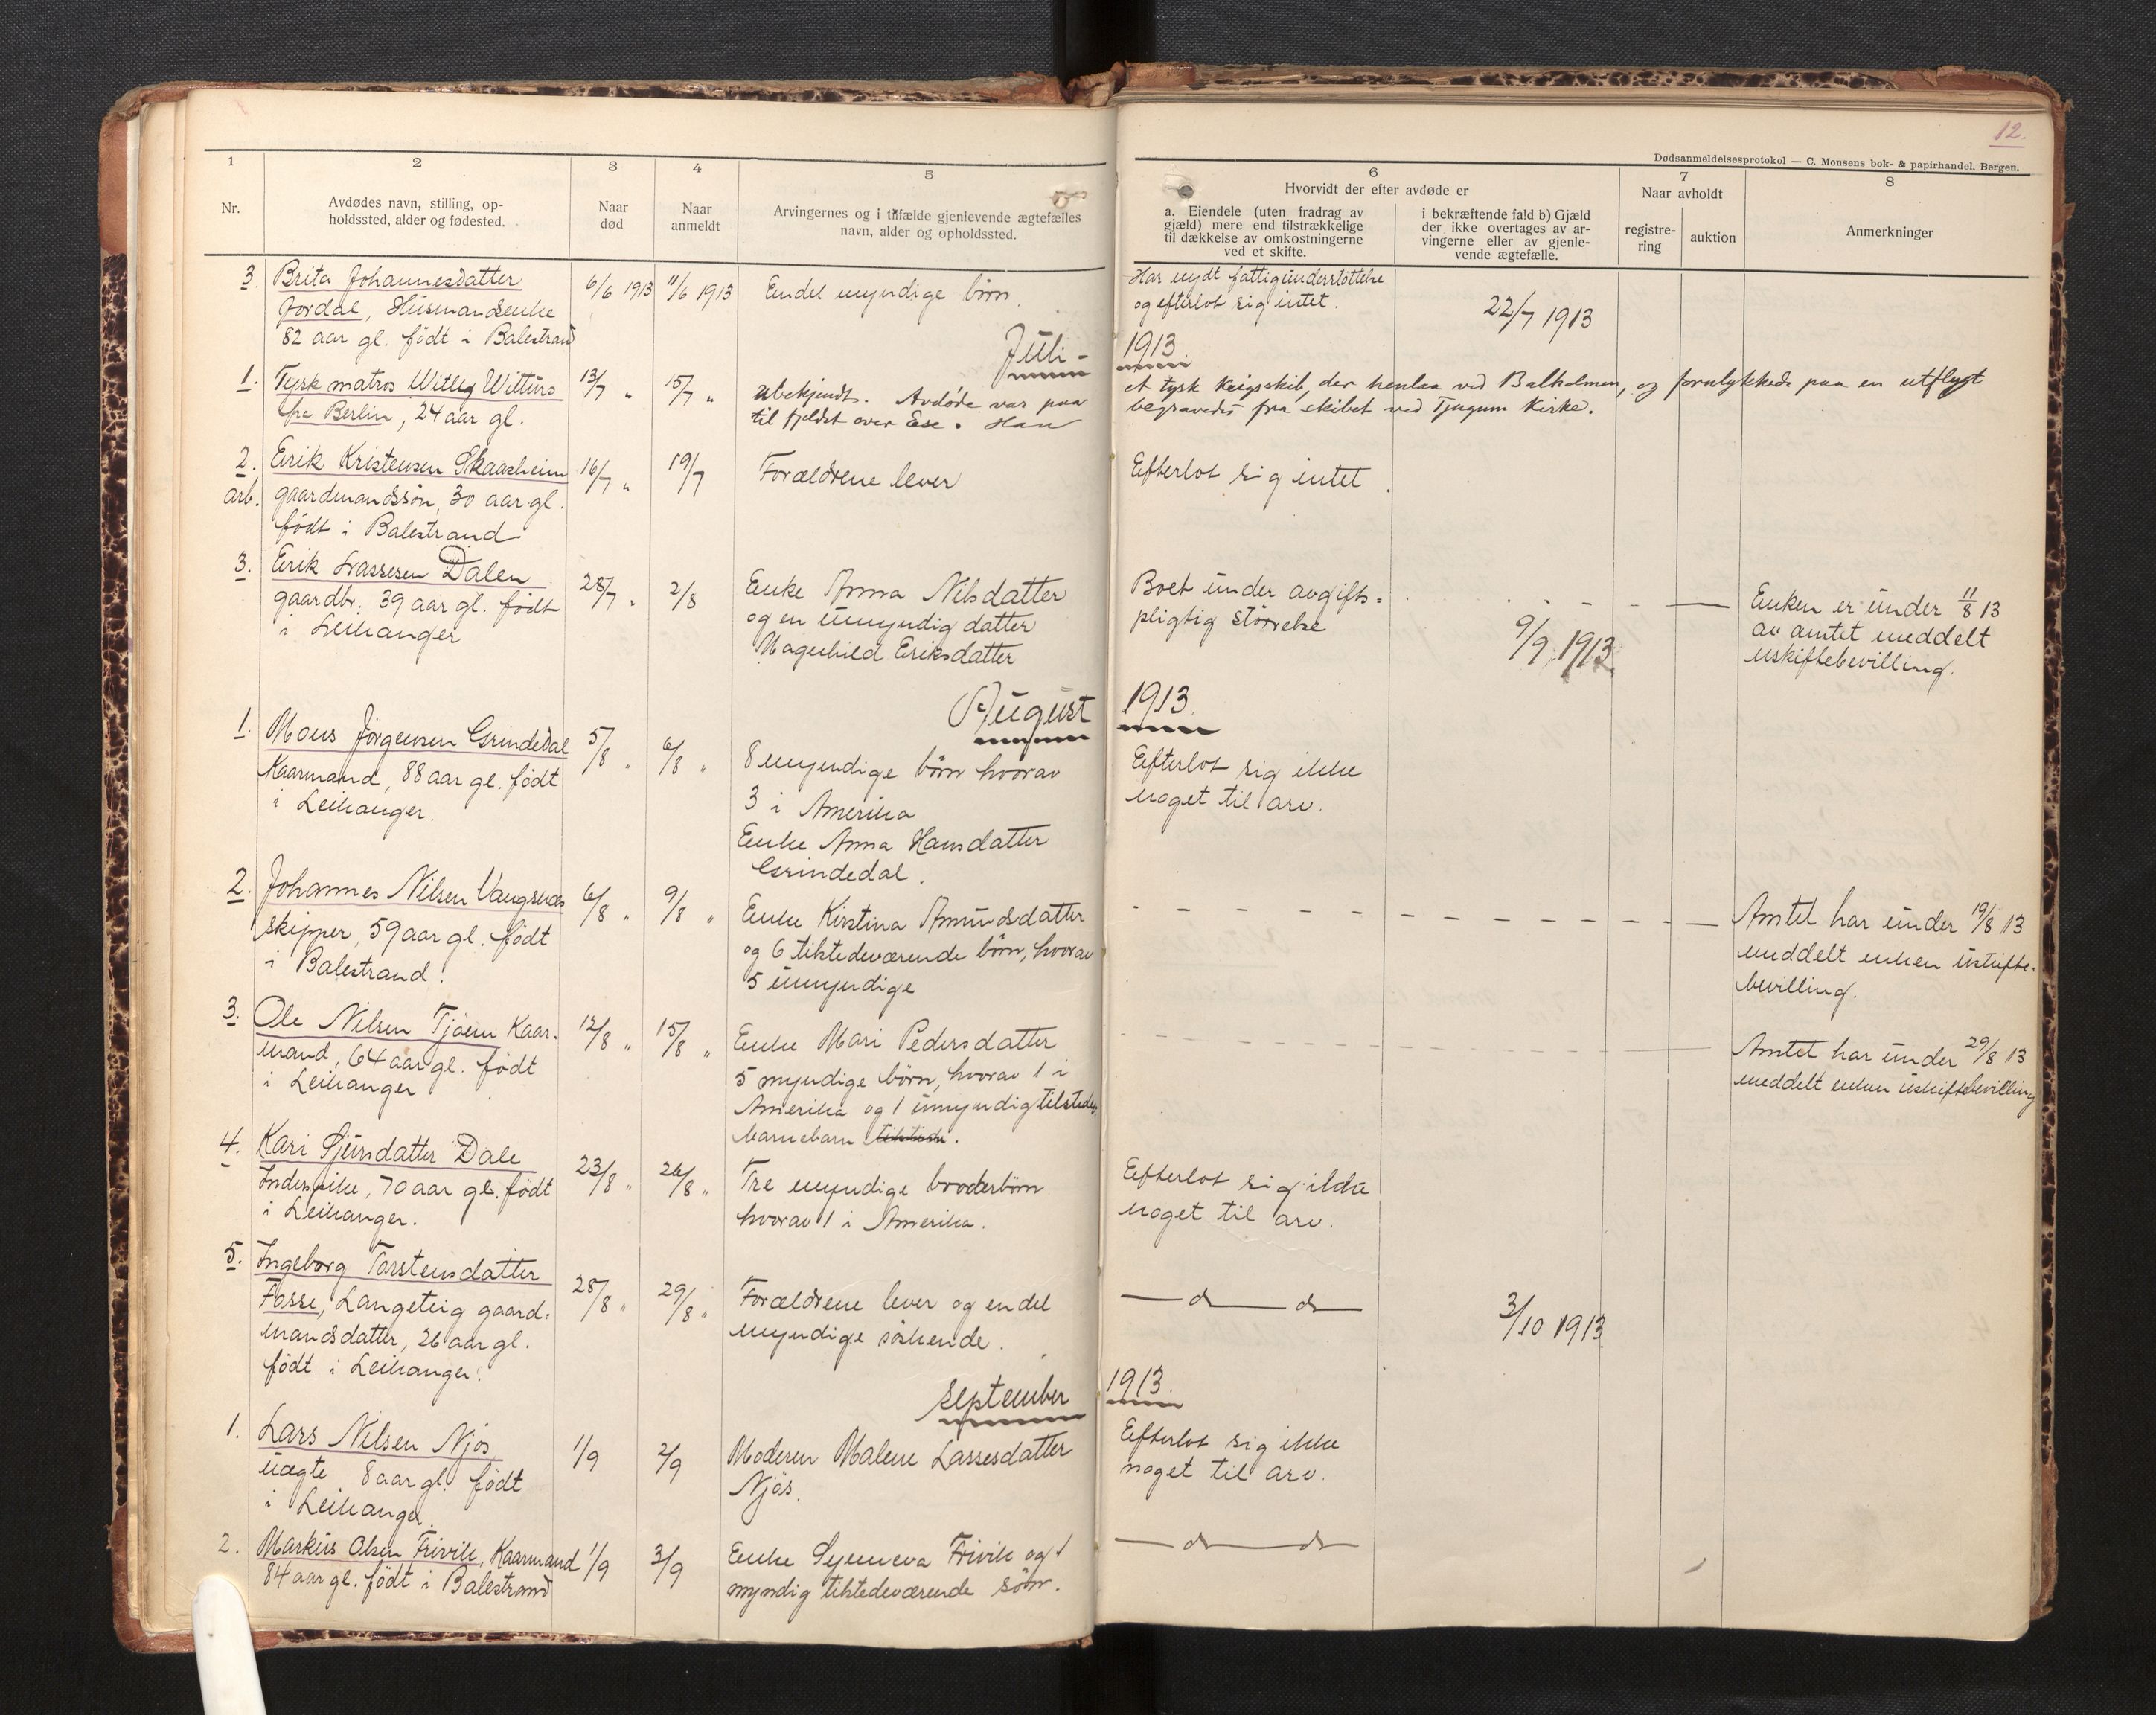 12.
Dødsanmeldelsesprotokol — C. Monsens bok- & papirhandel. Bergen.
1
2
3
4
5
6
7
8
Nr.
Avdødes navn, stilling, op-
holdssted, alder og fødested.
Naar
død
Naar
anmeldt
Arvingernes og i tilfælde gjenlevende ægtefælles
navn, alder og opholdssted.
Hvorvidt der efter avdøde er
a. Eiendele (uten fradrag av
gjæld) mere end tilstrækkelige
til dækkelse av omkostningerne
ved et skifte.
i bekræftende fald b) Gjæld
der ikke overtages av ar-
vingerne eller av gjenle-
vende ægtefælle.
Naar avholdt
registre-
ring
auktion
Anmerkninger
3.
Brita Johannesdatter
Jordal, Husmandsenke
82 aar gl. født i Balestrand
6/6 1913
11/6 1913
Endel myndige børn.
Har nydt fattigunderstøttelse
og efterlot sig intet.
22/7 1913
Juli - 1913.
1.
Tysk matros Wittus
fra Berlin, 24 aar gl.
13/7 "
15/7 "
ubekjendt. Avdøde var paa et tysk krigsskib, der henlaa ved Balholmen, og forulykkede paa en utflugt
til fjeldet over Ese. Han begravedes fra skibet ved Tjugum Kirke.
2.
arb.
Eirik Kristensen Skaasheim
gaardmandssøn, 30 aar gl.
født i Balestrand
16/7 "
19/7
Forældrene lever
Efterlot sig intet.
3.
Eirik Lassesen Dalen
gaardbr. 39 aar gl. født
i Leikanger
28/7 "
2/8
Enke Anna Nilsdatter
og en umyndig datter
Magnhild Eriksdatter
Boet under avgifts-
pligtig størrelse
9/9 1913
Enken er under 11/8 13
av amtet meddelt
uskiftebevilling.
August 1913.
1.
Mons Jørgensen Grindedal
Kaarmand, 88 aar gl. født
i Leikanger.
5/8 "
6/8 "
8 myndige børn hvorav
3 i Amerika
Enke Anna Hansdatter
Grindedal.
Efterlot sig ikke
noget til arv.
2.
Johannes Nilsen Vangsnæs
skipper, 59 aar gl. født
i Balestrand.
6/8 "
9/8 "
Enke Kirstina Amundsdatter
og 6 tilstedeværende børn, hvorav
5 umyndige
Amtet har under 19/8 13
meddelt enken uskifte-
bevilling.
3.
Ole Nilsen Tjøen Kaar-
mand, 64 aar gl. født
i Leikanger
12/8 "
15/8 "
Enke Mari Pedersdatter
5 myndige børn, hvorav 1 i
Amerika og 1 umyndig tilstedev.
barnebarn.
Amtet har under 29/8 13
meddelt enken uskiftebevilling
4.
Kari Sjursdatter Dale
Inderpike, 70 aar gl. født
i Leikanger.
23/8 "
26/8 "
Tre myndige broderbørn
hvorav 1 i Amerika.
Efterlot sig ikke
noget til arv.
5.
Ingeborg Torsteinsdatter
Fosse, Langeteig gaard-
mandsdatter, 26 aar gl.
født i Leikanger.
28/8 "
29/8 "
Forældrene lever og endel
myndige søskende.
— d — d —
3/10 1913.
September 1913.
1.
Lars Nilsen Njøs
uægte, 8 aar gl. født
i Leikanger.
1/9
2/9
Moderen Malene Lassesdatter
Njøs.
Efterlot sig ikke
noget til arv.
2.
Markus Olsen Frivik, Kaarmand
84 aar gl. født i Balestrand
1/9
3/9
Enke Synneva Frivik og 1
myndig tilstedeværende søn.
— d — d —